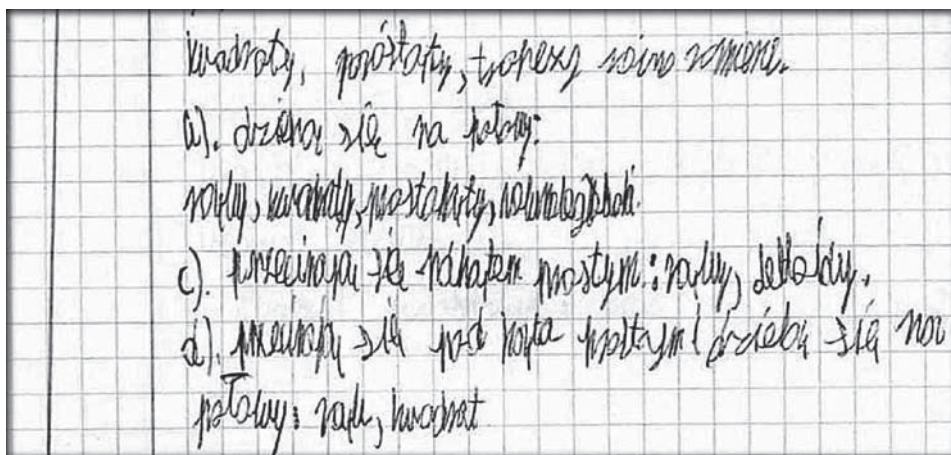 kwadraty, prostaty, trapezy równo ramiene.
a). dzielą się na połowy:
romby, kwadraty, prostokąty, równoległoboki.
c). przecinają się kątem prostym: romby, deltoidy.
d). przecinają się pod kąta prostzym i dzielą się na
połowy: romb, kwadrat